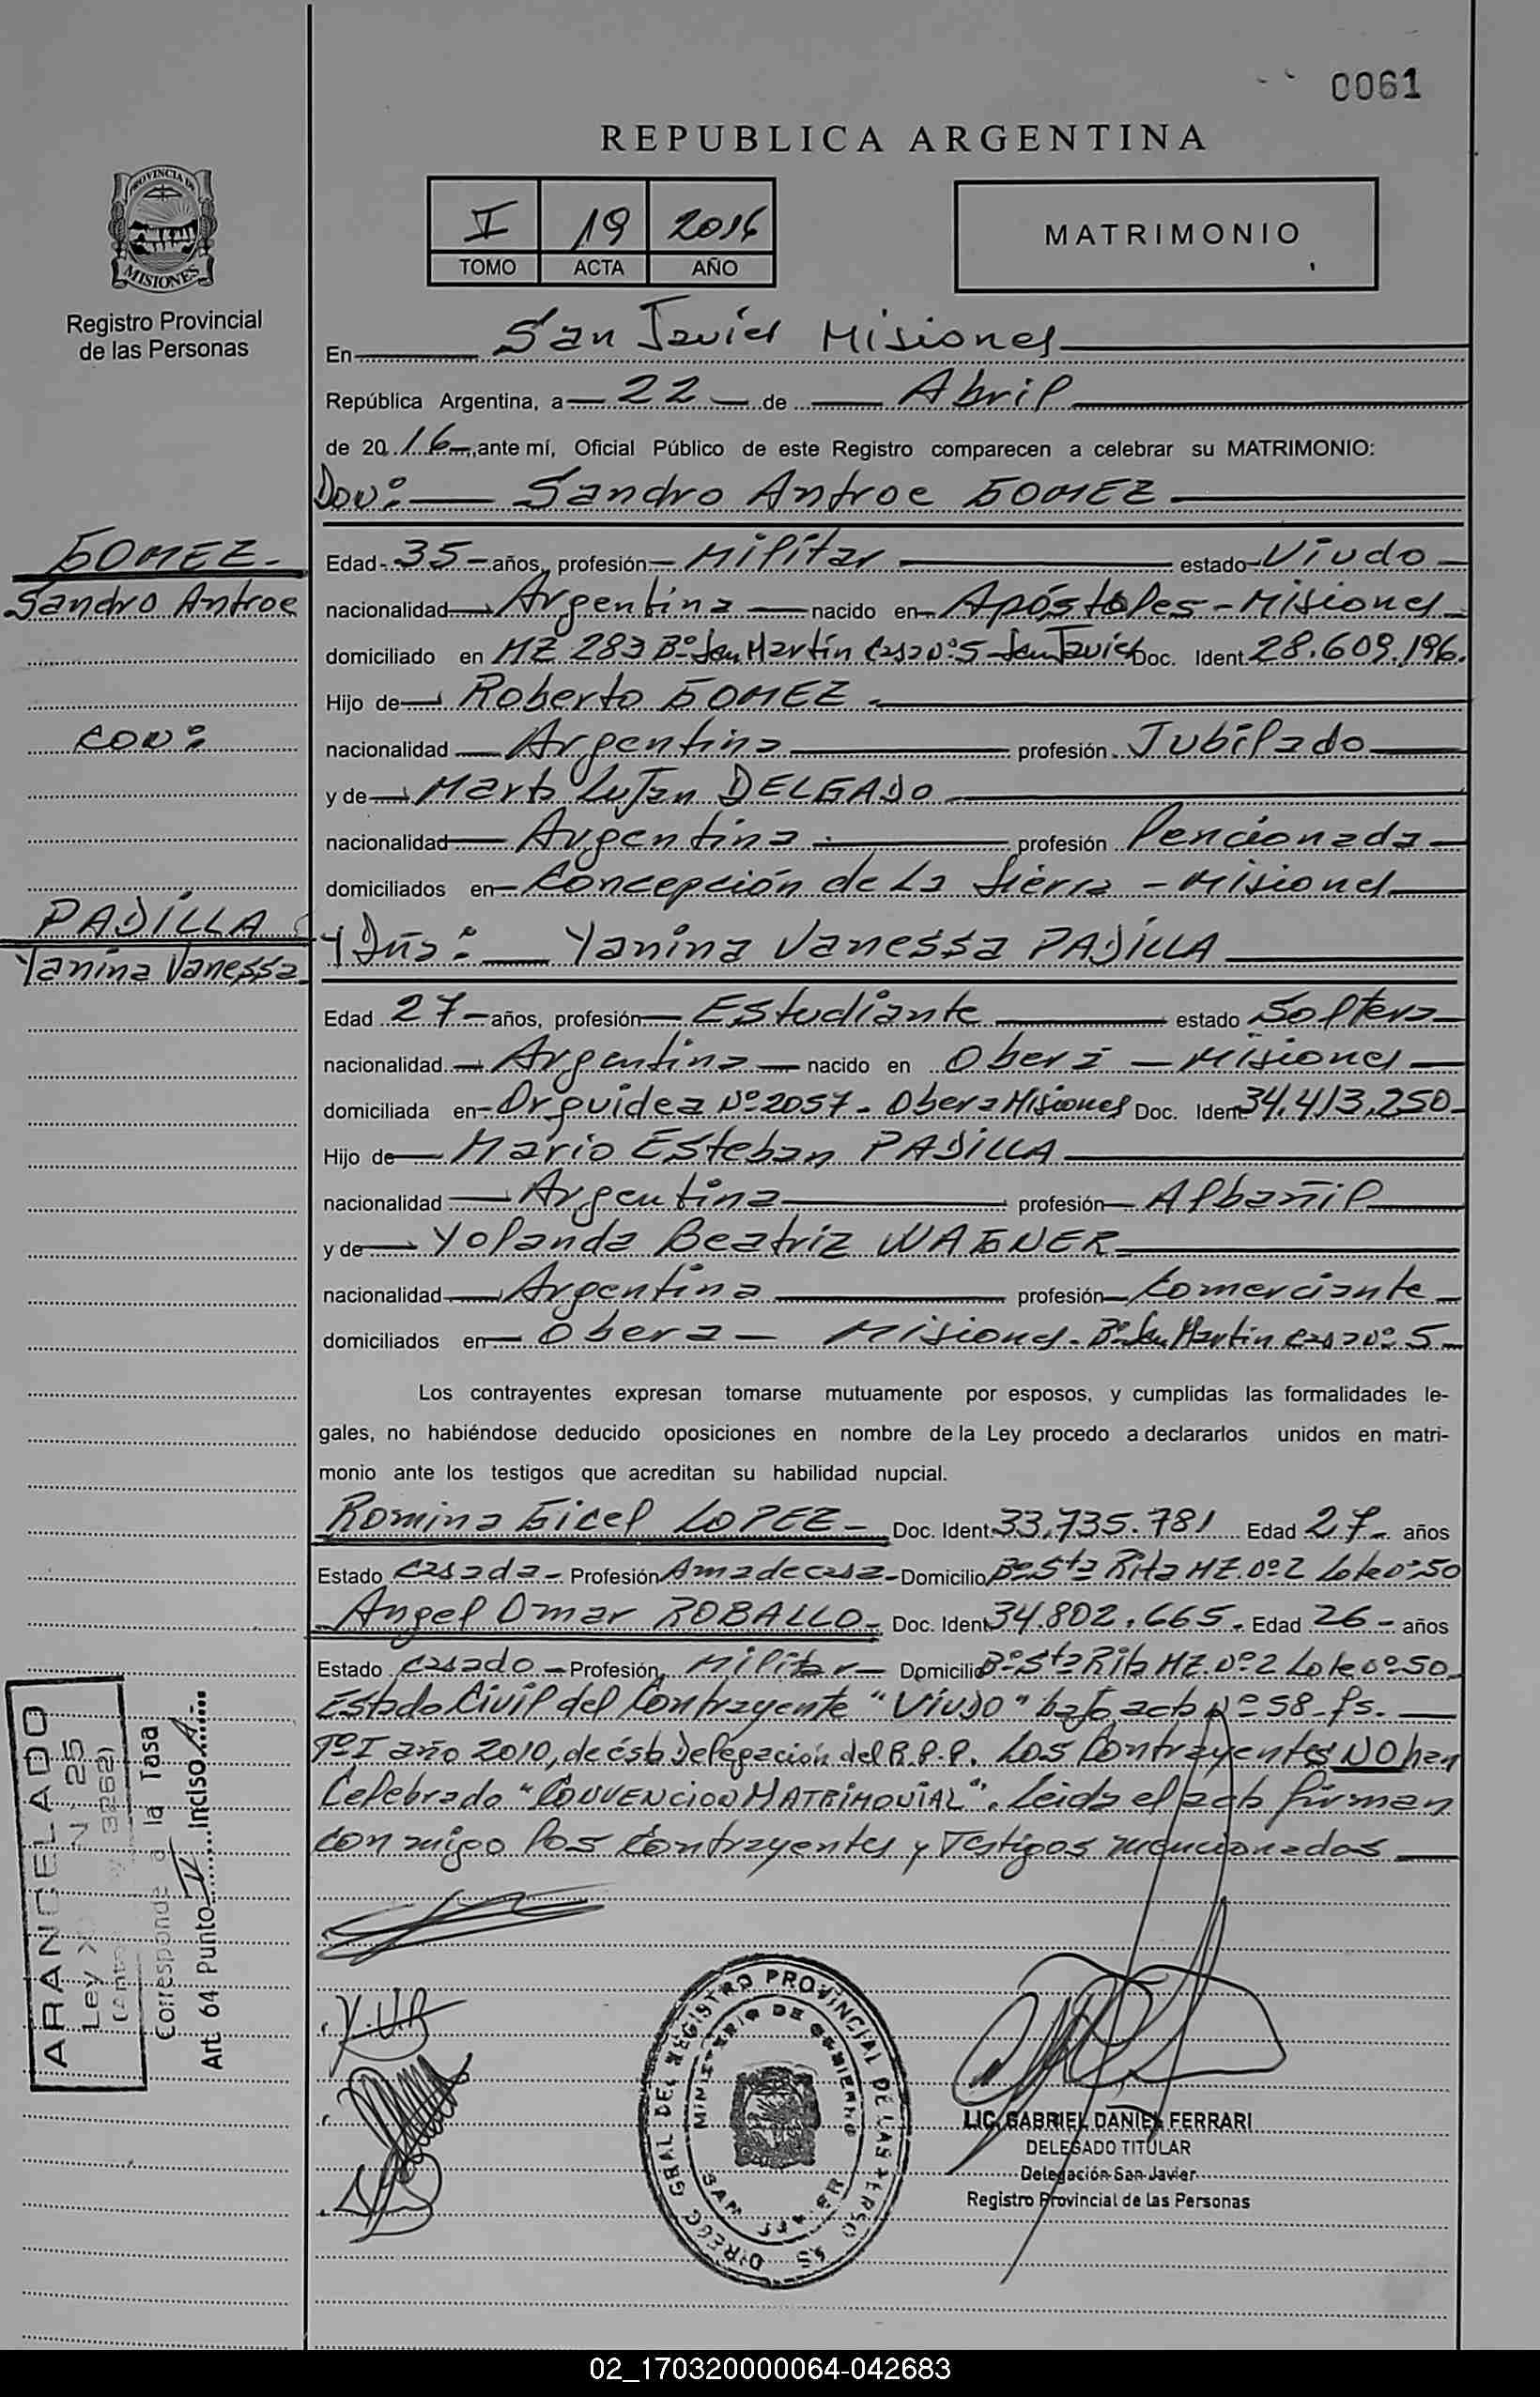 0061
REPUBLICA ARGENTINA
PROVINCIA DE
MISIONES
Registro Provincial
de las Personas
I 19 2016
TOMO ACTA AÑO
MATRIMONIO
En San Javier Misiones
República Argentina, a 22 de Abril
de 2016 ante mí, Oficial Público de este Registro comparecen a celebrar su MATRIMONIO:
Don: Sandro Antroe GOMEZ
GOMEZ
Sandro Antroe
con:
PADILLA
Yanina Vanessa
Edad 35 años, profesión Militar estado Viudo
nacionalidad Argentina nacido en Apóstoles - Misiones
domiciliado en MZ 283 Bº San Martín Casa Nº 5 - San Javier Doc. Ident 28.609.196.
Hijo de Roberto GOMEZ
nacionalidad Argentina profesión Jubilado
y de Marta Lujan DELGADO
nacionalidad Argentina profesión Pencionada
domiciliados en Concepción de La Sierra - Misiones
Y Dña: Yanina Vanessa PADILLA
Edad 27 años, profesión Estudiante estado Soltera
nacionalidad Argentina nacido en Oberá - Misiones
domiciliada en Orquidea Nº 2057 - Obera Misiones Doc. Ident 34.413.250
Hijo de Mario Esteban PADILLA
nacionalidad Argentina profesión Albañil
y de Yolanda Beatriz WAGNER
nacionalidad Argentina profesión Comerciante
domiciliados en Obera - Misiones - Bº San Martin Casa Nº 5
Los contrayentes expresan tomarse mutuamente por esposos, y cumplidas las formalidades le-
gales, no habiéndose deducido oposiciones en nombre de la Ley procedo a declararlos unidos en matri-
monio ante los testigos que acreditan su habilidad nupcial.
Romina Gicel LOPEZ Doc. Ident 33.735.781 Edad 27 años
Estado Casada - Profesión Ama de casa - Domicilio Bº Sta Rita MZ. Nº 2 Lote Nº 50
Angel Omar ROBALLO Doc. Ident 34.802.665 Edad 26 años
Estado Casado - Profesión Militar - Domicilio Bº Sta Rita MZ. Nº 2 Lote Nº 50
Estado Civil del Contrayente "VIUDO" bajo acta Nº 58 - fs.
Tº I año 2010, de ésta Delegación del R.P.P. Los Contrayentes NO han
Celebrado "CONVENCION MATRIMONIAL". Leida el acta firman
con migo los Contrayentes y Testigos mencionados
ARANCELADO
Ley N. 25
3262)
Corresponde a la Tasa
Art. 64 Punto II Inciso A
DIRECC GRAL DEL REGISTRO PROVINCIAL DE LAS PERSONAS
MINISTERIO DE GOBIERNO
SAN JAVIER
LIC. GABRIEL DANIEL FERRARI
DELEGADO TITULAR
Delegación San Javier
Registro Provincial de las Personas
02_170320000064-042683